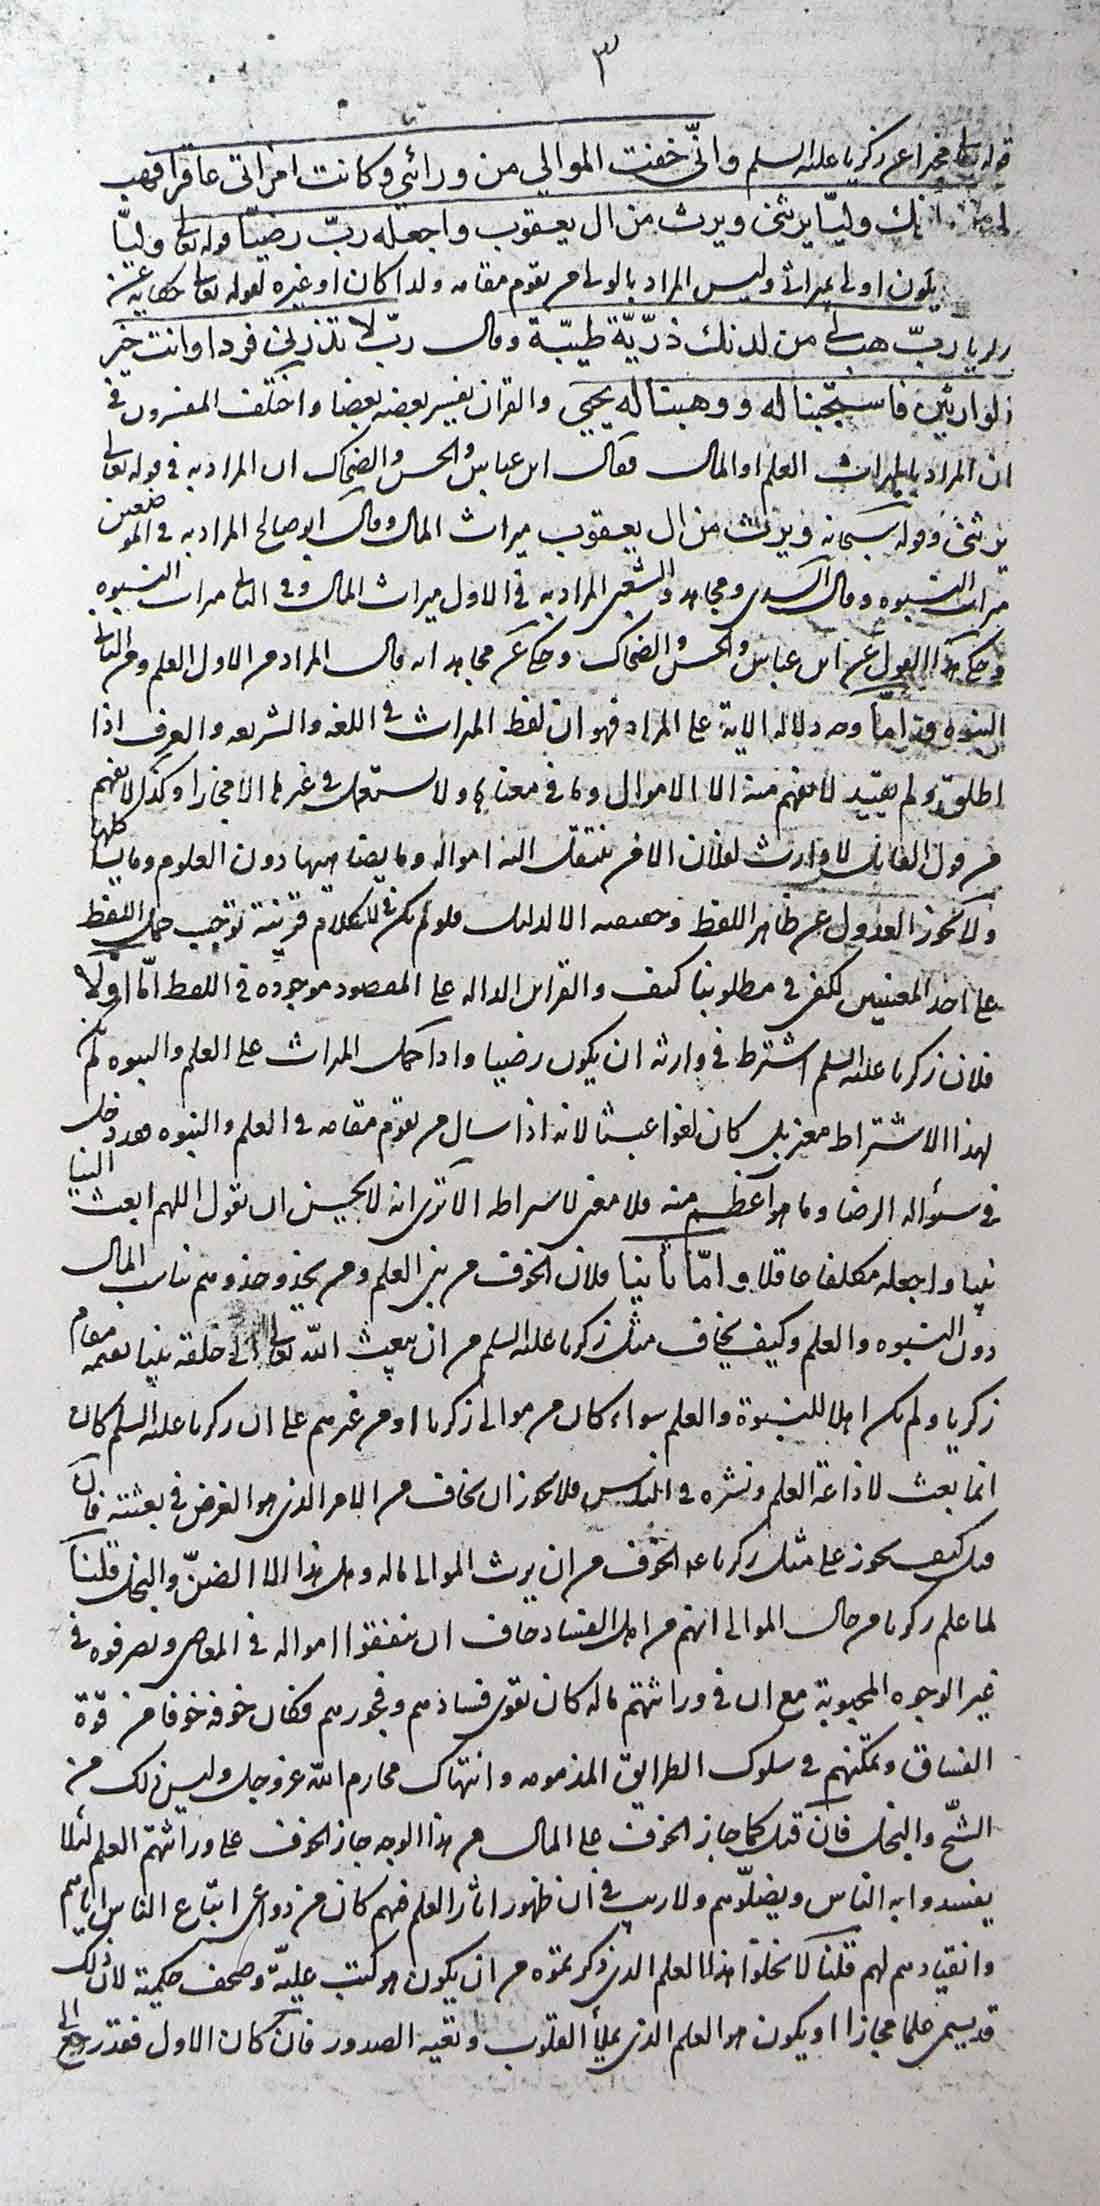 ٣
قوله تعالى مخبرا عن زكريا عليه السلم وانّي خفت الموالي من ورائي وكانت امراتي عاقرا فهب
لي من لدنك وليّا يرثني ويرث من ال يعقوب واجعله ربّ رضيّا قوله تعالى وليّا
يكون اولى بميراثي وليس المراد بالولي من يقوم مقامه ولدا كان او غيره لقوله تعالى حكاية عن
زكريا ربّ هب لي من لدنك ذرّيّة طيّبة وقال ربّ لا تذرني فردا وانت خير
الوارثين فاستجبنا له ووهبنا له يحيى والقران يفسر بعضه بعضا واختلف المفسرون في
ان المراد بالميراث العلم او المال فقال ابن عباس والحسن والضحاك ان المراد به في قوله تعالى
يرثني وقوله سبحانه ويرث من ال يعقوب ميراث المال وقال ابو صالح المراد به في الموضعين
ميراث النبوه وقال السدي ومجاهد والشعبي المراد به في الاول ميراث المال وفي الثاني ميراث النبوه
وحكي هذا القول عن ابن عباس والحسن والضحاك وحكي عن مجاهد انه قال المراد من الاول العلم ومن الثاني
النبوة واما وجه دلاله الاية على المراد فهو ان لفظ الميراث في اللغه والشريعه والعرف اذا
اطلق ولم يقيّد لا يفهم منه الا الاموال وما في معناها ولا يستعمل في غيرها الا مجازا وكذا لا يفهم
من قول القائل لا وارث لفلان الا من ينتقل اليه امواله وما يضاهيها دون العلوم وما يشاكلها
ولا يجوز العدول عن ظاهر اللفظ وحقيقته الا لدليل فلو لم يكن في الكلام قرينة توجب حمل اللفظ
على احد المعنيين لكفى في مطلوبنا كيف والقراين الداله على المقصود موجوده في اللفظ امّا اولا
فلان زكريا عليه السلم اشترط في وارثه ان يكون رضيا واذا حمل الميراث على العلم والنبوه لم يكن
لهذا الاشتراط معنى بل كان لغوا عبثا لانه اذا سال من يقوم مقامه في العلم والنبوه فقد دخل
في سؤاله الرضا وما هو اعظم منه فلا معنى لاشتراطه الا ترى انه لا يحسن ان يقول اللهم ابعث الينا
نبيا واجعله مكلفا عاقلا وامّا ثانيا فلان الخوف من بني العلم ومن يحذو حذوهم يناسب المال
دون النبوه والعلم وكيف يخاف مثل زكريا عليه السلم من ان يبعث الله تعالى الى خلقه نبيا يقيمه مقام
زكريا ولم يكن اهلا للنبوة والعلم سواء كان من موالي زكريا او من غيرهم على ان زكريا عليه السلم كان
انما بعث لاذاعة العلم ونشره في الناس فلا يجوز ان يخاف من الامر الذي هو الغرض في بعثته فان
قيل كيف يجوز على مثل زكريا عليه الخوف من ان يرث الموالي ماله وهل هذا الا الضنّ والبخل قلنا
لما علم زكريا من حال الموالي انهم من اهل الفساد خاف ان ينفقوا امواله في المعاصي ويصرفوه في
غير الوجوه المحبوبة مع ان في وراثتهم ماله كان يقوى فسادهم وفجورهم فكان خوفه خوفا من قوة
الفساق وتمكّنهم في سلوك الطرايق المذمومه وانتهاك محارم الله عزوجل وليس ذلك من
الشّح والبخل فان قيل كما جاز الخوف على المال من هذا الوجه جاز الخوف على وراثتهم العلم لئلا
يفسدوا به الناس ويضلّوهم ولا ريب في ان ظهور اثار العلم فيهم كان من دواعي اتباع الناس اياهم
وانقيادهم لهم قلنا لا يخلو هذا العلم الذي ذكرتموه من ان يكون هو كتب علميّة وصحف حكمية لان ذلك
قد يسمى علما مجازا او يكون هو العلم الذي يملأ القلوب وتعيه الصدور فان كان الاول فقد رجع الى